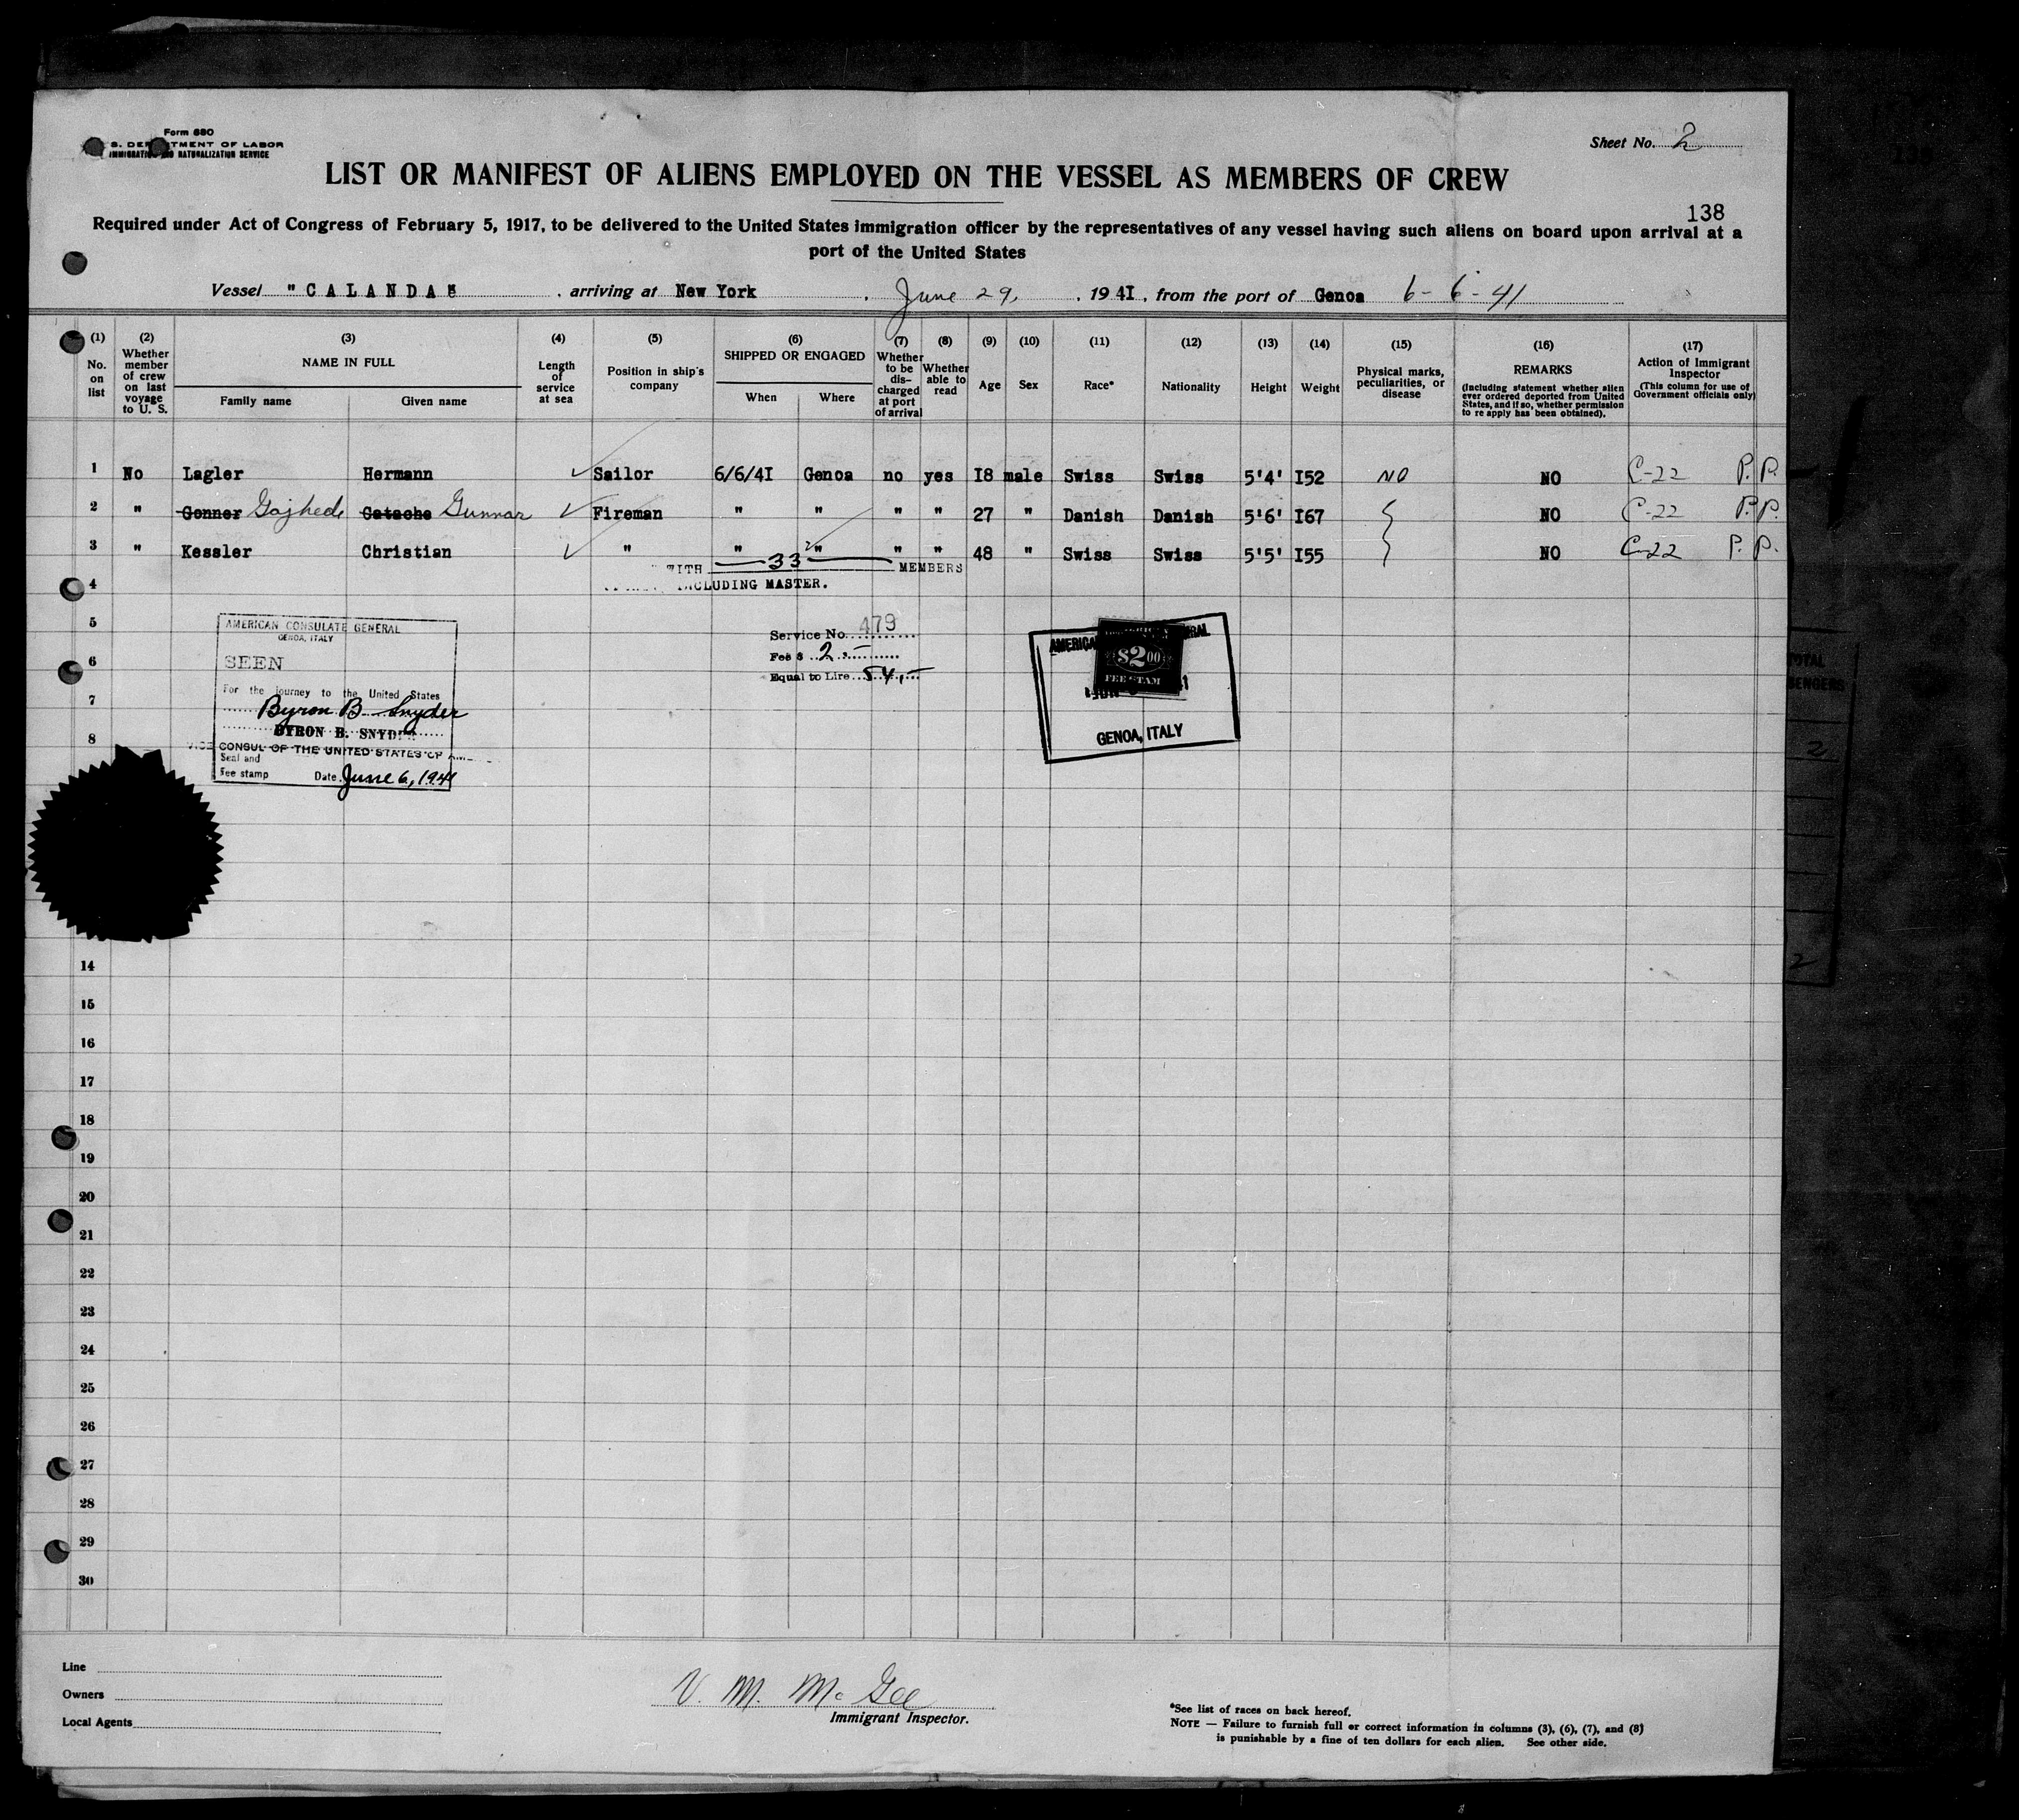 Form 680
S. DEPARTMENT OF LABOR
IMMIGRATION AND NATURALIZATION SERVICE
Sheet No. 2
LIST OR MANIFEST OF ALIENS EMPLOYED ON THE VESSEL AS MEMBERS OF CREW
138
Required under Act of Congress of February 5, 1917, to be delivered to the United States immigration officer by the representatives of any vessel having such aliens on board upon arrival at a
port of the United States
Vessel "CALANDA" , arriving at New York , June 29, , 1941, from the port of Genoa 6-6-41
(1) No. on list
(2) Whether member of crew on last voyage to U. S.
(3) NAME IN FULL
Family name
Given name
(4) Length of service at sea
(5) Position in ship's company
(6) SHIPPED OR ENGAGED
When
Where
(7) Whether to be discharged at port of arrival
(8) Whether able to read
(9) Age
(10) Sex
(11) Race*
(12) Nationality
(13) Height
(14) Weight
(15) Physical marks, peculiarities, or disease
(16) REMARKS
(Including statement whether alien ever ordered deported from United States, and if so, whether permission to re apply has been obtained).
(17) Action of Immigrant Inspector
(This column for use of Government officials only)
1 No Lagler Hermann ✓ Sailor 6/6/4I Genoa no yes I8 male Swiss Swiss 5'4' I52 NO NO C-22 P.P.
2 " Gonner Gajhede Catache Gunnar ✓ Fireman " " " " 27 " Danish Danish 5'6' I67 NO C-22 P.P.
3 " Kessler Christian ✓ " " " " " 48 " Swiss Swiss 5'5' I55 NO C-22 P.P.
WITH 33 MEMBERS
4 INCLUDING MASTER.
5
6
7
8
AMERICAN CONSULATE GENERAL
GENOA, ITALY
SEEN
For the journey to the United States
Byron B. Snyder
BYRON B. SNYDER
VICE CONSUL OF THE UNITED STATES OF AM
Seal and
Fee stamp Date June 6, 1941
Service No. 479
Fee $ 2.-
Equal to Lire 54,-
AMERICAN
$2.00
FEE STAMP
GENOA, ITALY
TOTAL
2
2
14
15
16
17
18
19
20
21
22
23
24
25
26
27
28
29
30
Line
Owners
Local Agents
V. M. McGee
Immigrant Inspector.
*See list of races on back hereof.
NOTE — Failure to furnish full or correct information in columns (3), (6), (7), and (8)
is punishable by a fine of ten dollars for each alien. See other side.